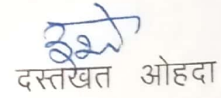 दस्तखेत ओहदा